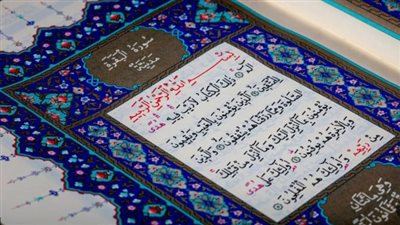 سورة البقرة
مدنية
بسم الله الرحمن الرحيم
الم ذلك الكتاب لا ريب فيه هدى
للمتقين الذين يؤمنون بالغيب ويقيمون
الصلوة ومما رزقناهم ينفقون والذين
يؤمنون بما انزل اليك وما انزل من قبلك
وبالاخرة هم يوقنون اولئك على هدى
من ربهم واولئك هم المفلحون